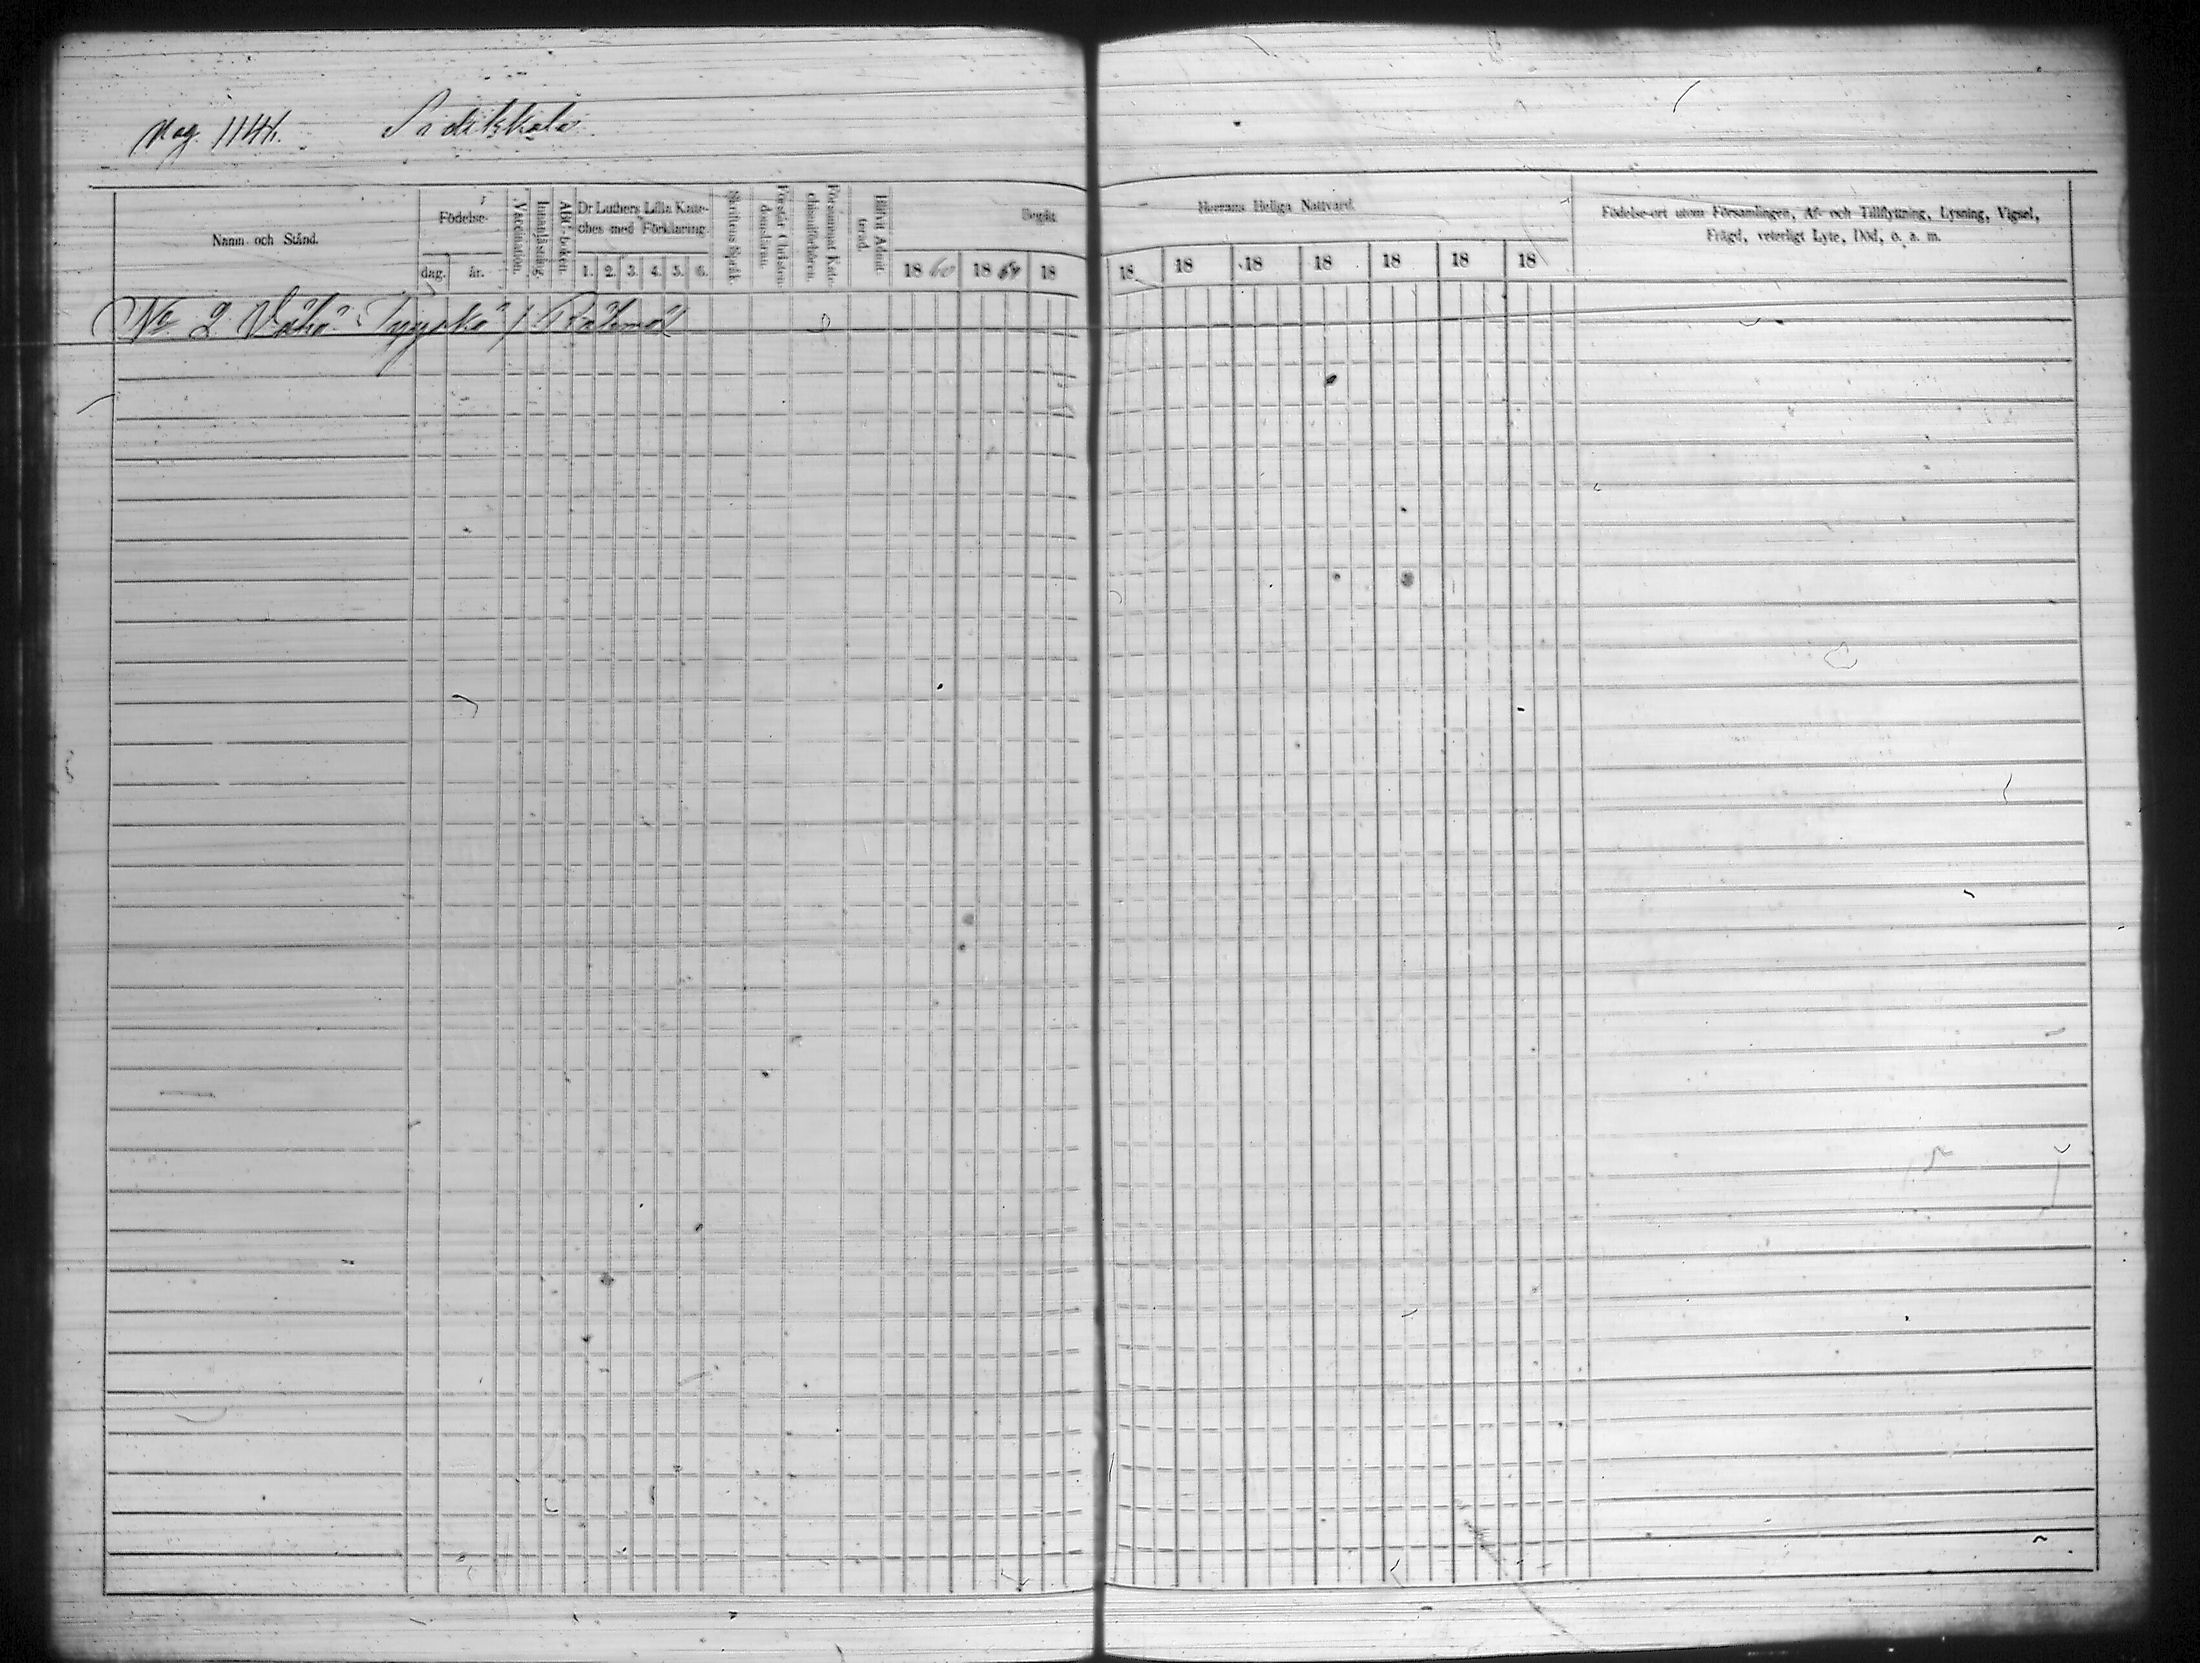 pag. 1141. Sadikkala
Namn och Stånd.
Födelse-
dag. år.
Vaccination.
Innanläsning.
ABC-boken.
Dr Luthers Lilla Kate-
ches med Förklaring.
1. 2. 3. 4. 5. 6.
Skriftens Språk.
Förstår Christen-
domsläran.
Försummat Kate-
chismiförhören.
Blifvit Admit-
terad.
Begått
Herrans Heliga Nattvard.
18 60 18 61 18 18 18 18 18 18 18 18
Födelse-ort utom Församlingen, Af- och Tillflyttning, Lysning, Vigsel,
Frägd, veterligt Lyte, Död, o. s. m.
No 2 Vähä